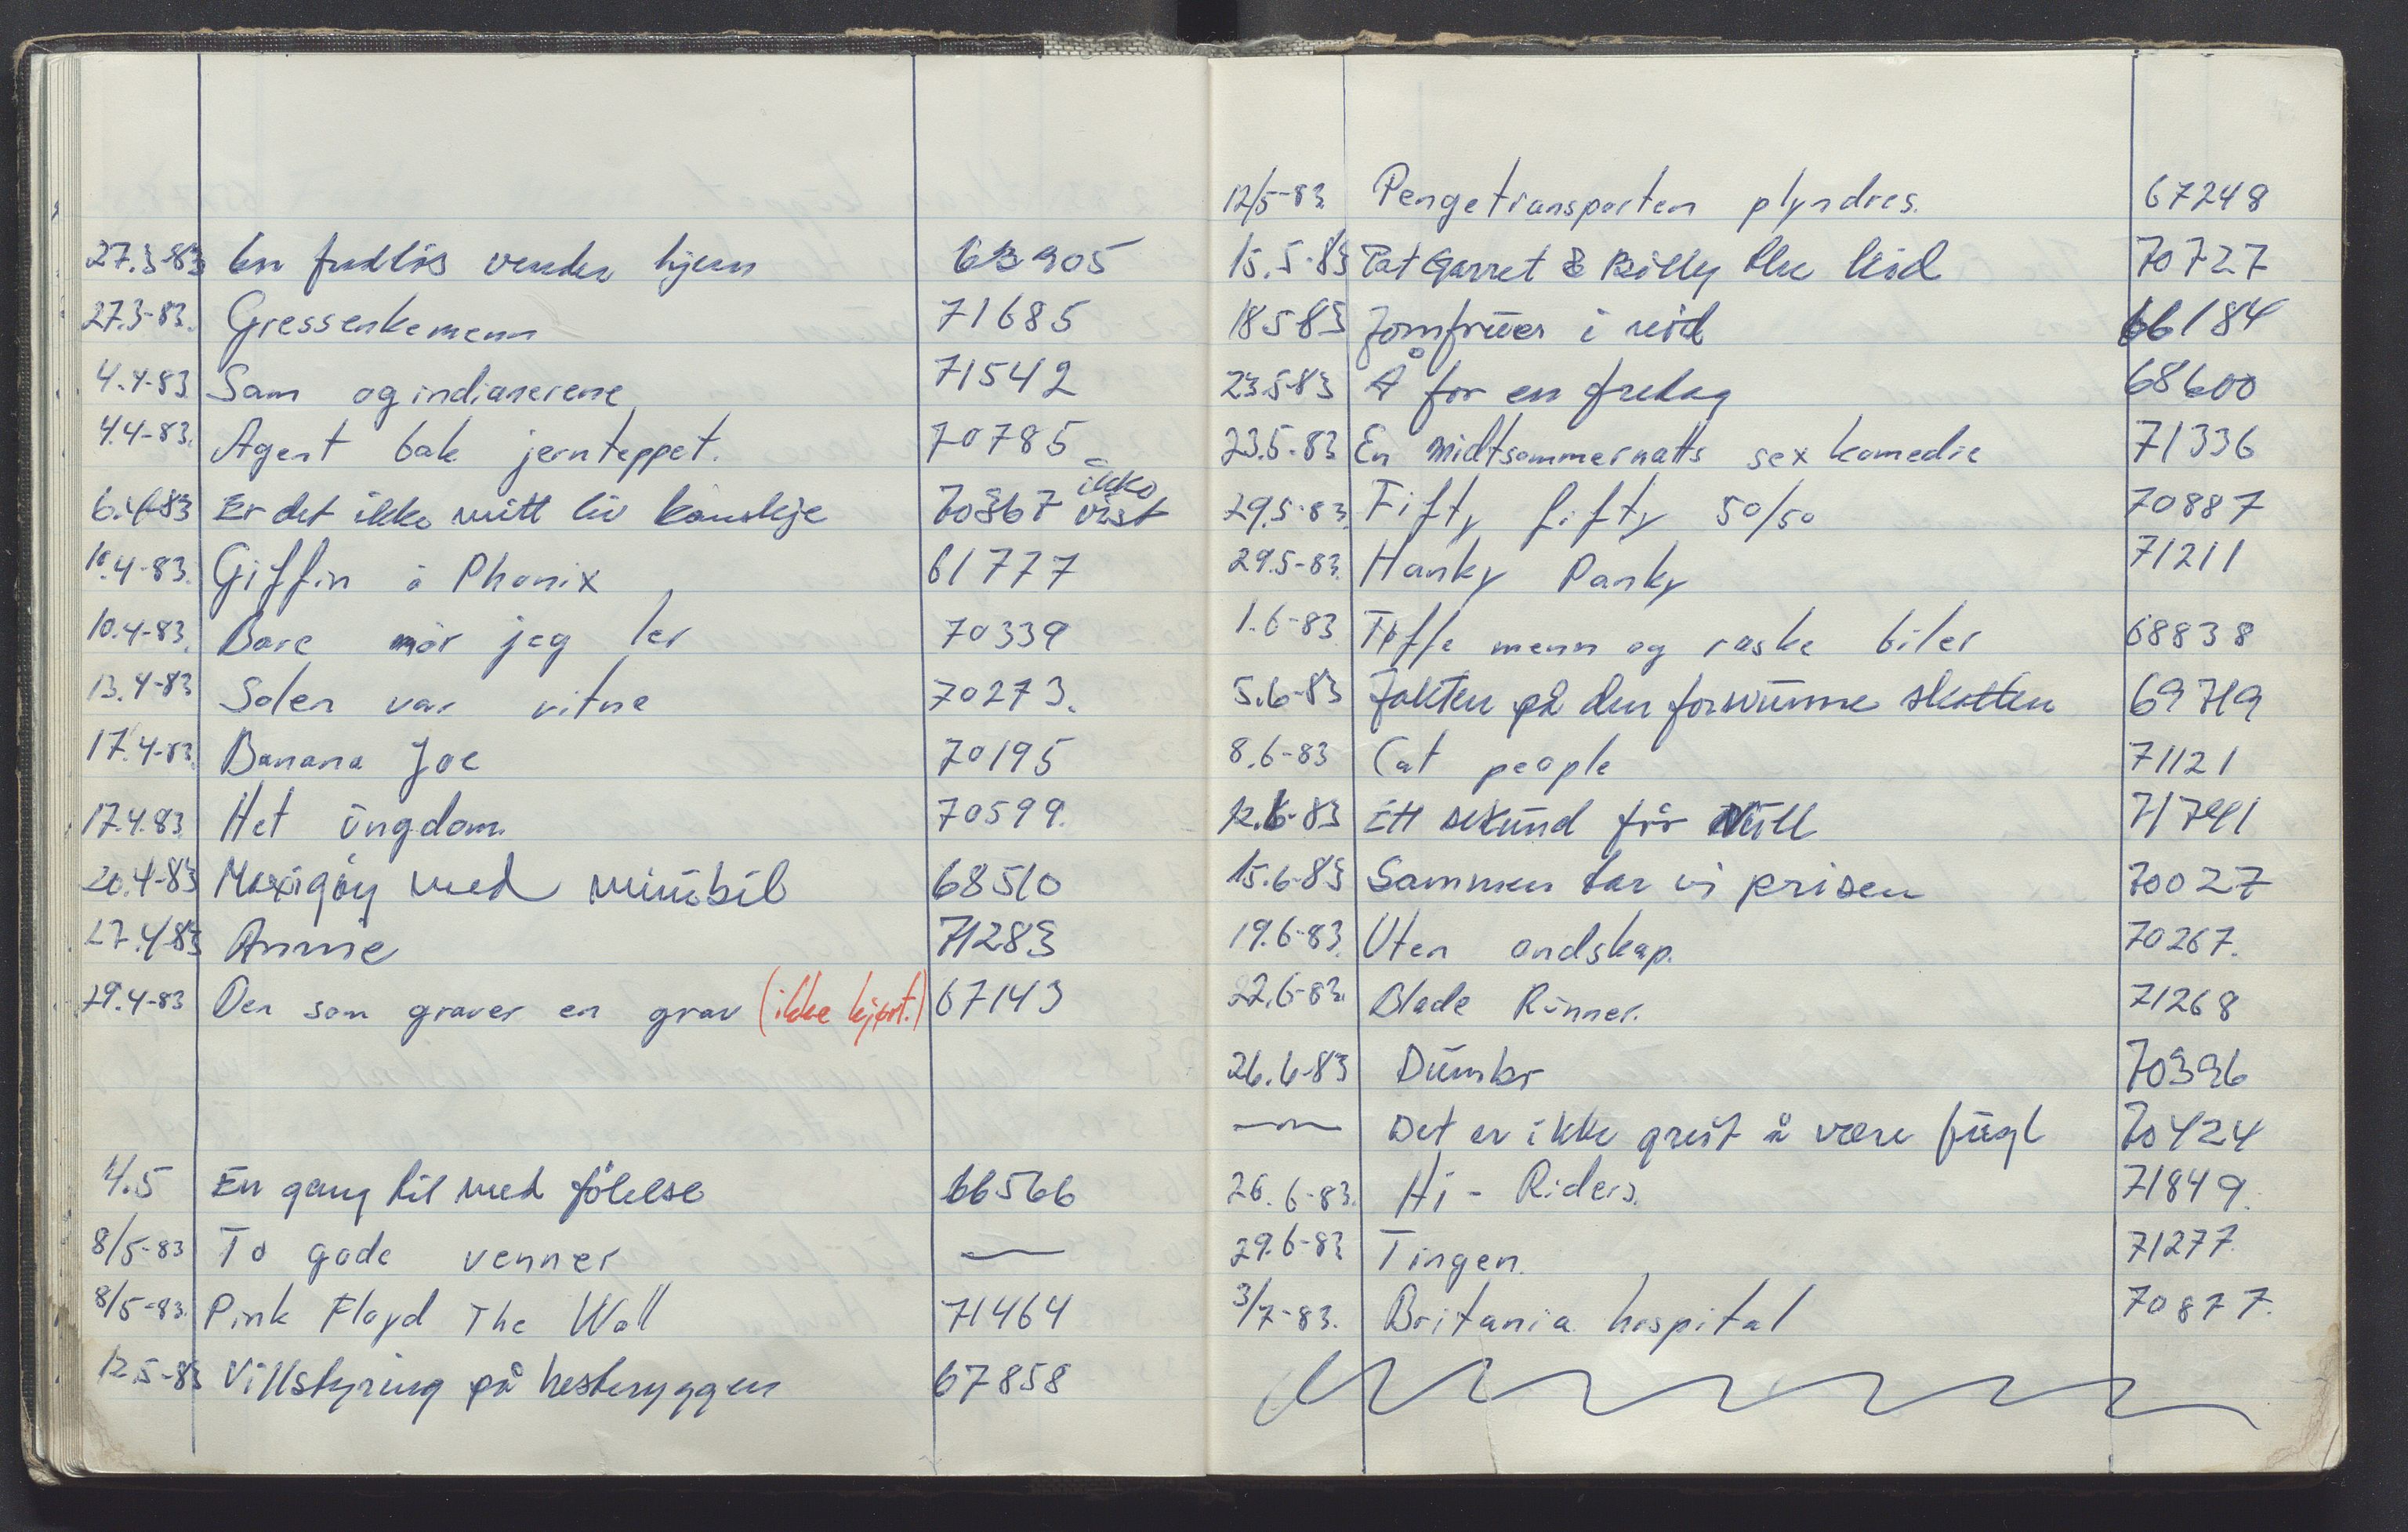 27.3-83 En fredlös vender hjem 63905
27.3-83. Gressenkemenn 71685
4.4-83 Sam og indianerene 71542
4.4-83. Agent bak jernteppet. 70785
6.4-83 Er det ikke mitt liv kanskje 70367 - ikke vist
10.4-83. Giffin å Phonix 61777
10.4-83. Bare når jeg ler 70339
13.4-83 Solen var vitne 70273.
17.4-83. Banana Joe 70195
17.4.83. Het ungdom. 70599.
20.4-83 Maxigöy med minibil 68510
27.4-83 Annie 71283
29.4-83 Den som graver en grav (ikke kjørt.) 67143
4.5 En gang til med fölelse 66566
8/5-83 To gode venner —
8/5-83. Pink Floyd The Wall 71464
12.5-83 Villstyring på hesteryggen 67858
12/5-83. Pengetransporten plyndres. 67248
15.5-83 Pat Garret & Billy the kid 70727
18.5-83 Jomfruer i nöd 66184
23.5-83 Å for en fredag 68600
23.5-83 En midtsommernatts sex komedie 71336
29.5-83. Fifty fifty 50/50 70887
29.5-83. Hanky Panky 71211
1.6-83 Tøffe menn og raske biler 68838
5.6-83 Jakten på den forsvunne skatten 69719
8.6-83 Cat people 71121
12.6-83 Ett sekund för Null 71741
15.6-83 Sammen tar vi prisen 70027
19.6-83. Uten ondskap. 70267.
22.6-83. Blade Runner. 71268
26.6-83 Dumbo 70396
—"— Det er ikke greit å være fugl 70424
26.6-83. Hi - Riders. 71849.
29.6-83 Tingen. 71277.
3/7-83. Britania hospital 70877.